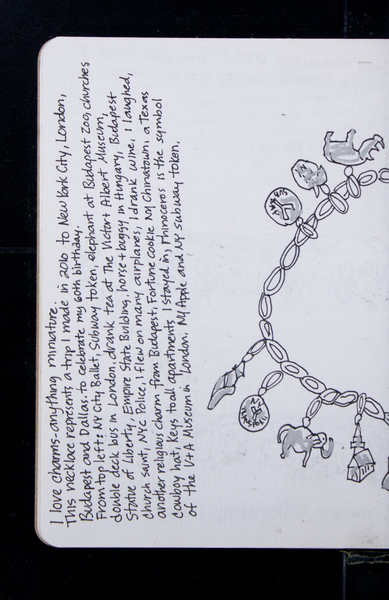 I love charms-anything miniature.
This necklace represents a trip I made in 2010 to New York City, London,
Budapest and Dallas. to celebrate my 60th birthday.
From top left: NY City Ballet, Subway token, elephant at Budapest Zoo, churches
double deck bus in London, drank tea at The Victort Albert Museum,
Statue of Liberty, Empire State Building, horse + buggy in Hungary, Budapest
church saint, NYC Police, I flew on many airplanes, I drank wine, I laughed,
another religious charm from Budapest, Fortune Cookie NY Chinatown, a Texas
Cowboy hat, Keys to all apartments I stayed in, rhinoceros is the symbol
of the V+A Museum in London. NY Apple and NY subway token.